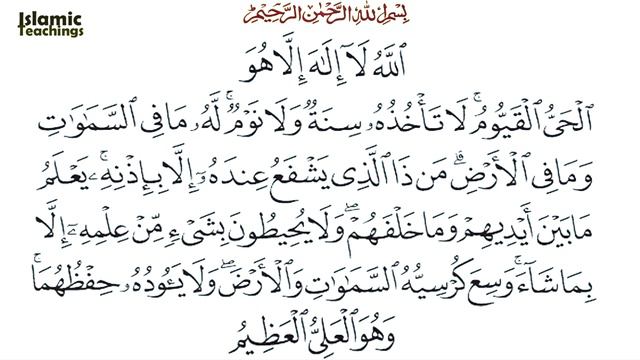 Islamic
Teachings
بِسْمِ اللهِ الرَّحْمٰنِ الرَّحِيْمِ
ٱللَّهُ لَآ إِلَٰهَ إِلَّا هُوَ
ٱلْحَىُّ ٱلْقَيُّومُ ۚ لَا تَأْخُذُهُۥ سِنَةٌ وَلَا نَوْمٌ ۚ لَّهُۥ مَا فِى ٱلسَّمَٰوَٰتِ
وَمَا فِى ٱلْأَرْضِ ۗ مَن ذَا ٱلَّذِى يَشْفَعُ عِندَهُۥٓ إِلَّا بِإِذْنِهِۦ ۚ يَعْلَمُ
مَا بَيْنَ أَيْدِيهِمْ وَمَا خَلْفَهُمْ ۖ وَلَا يُحِيطُونَ بِشَىْءٍ مِّنْ عِلْمِهِۦٓ إِلَّا
بِمَا شَآءَ ۚ وَسِعَ كُرْسِيُّهُ ٱلسَّمَٰوَٰتِ وَٱلْأَرْضَ ۖ وَلَا يَـُٔودُهُۥ حِفْظُهُمَا ۚ
وَهُوَ ٱلْعَلِىُّ ٱلْعَظِيمُ